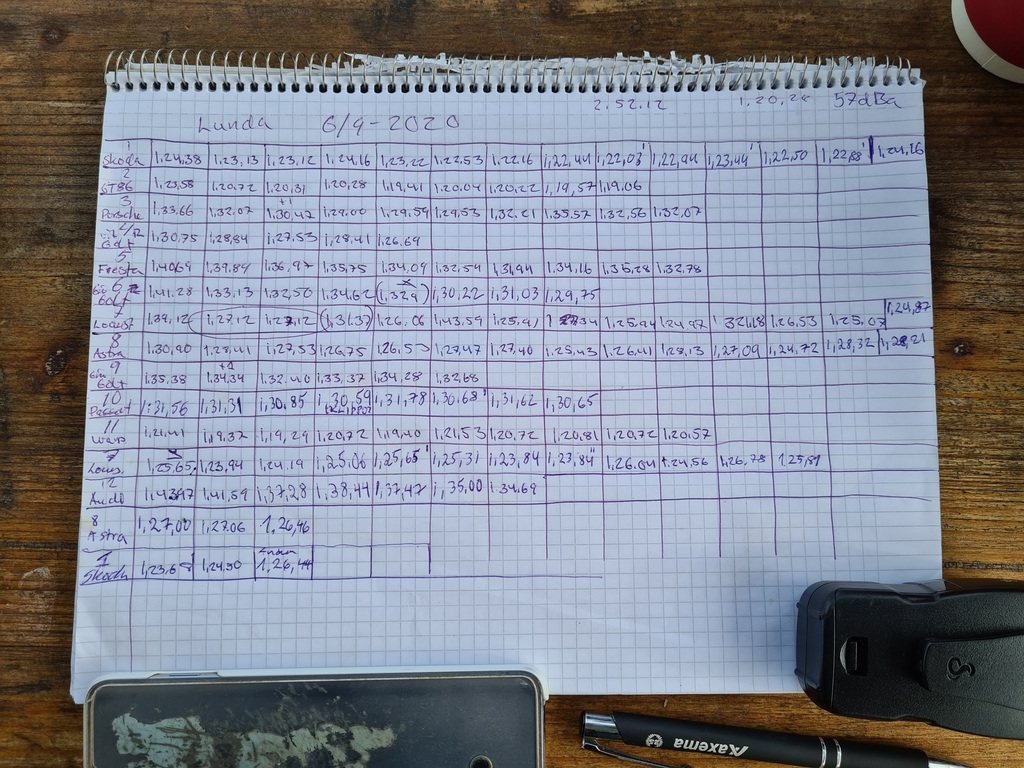 2.52.12 1.20.28 57dBa
Lunda 6/9-2020
1 Skoda 1.24.38 1.23,13 1.23,12 1.24.16 1,23,22 1,22.53 1,22.16 1,22,44 1,22,03' 1,22,94 1,23,44' 1,22.50 1,22,88' 1,24,26
2 ST86 1,23,58 1.20,72 1.20,31 1.20,28 1.19,41 1,20.04 1,20,22 1,19,57 1,19,06
3 Porsche 1,33,66 1.32.07 +1 1.30,42 1,29.00 1,29,59 1,29,53 1,32.21 1,35,57 1,32,56 1,32,07
4 Golf 1,30,75 1,28,84 1,27.53 1,28.41 1,26.69
5 Fiesta 1,40,69 1,39,89 1,36,97 1,35,75 1,34,09 1,32,54 1,31,94 1,34,16 1,35,28 1,32,78
6 Golf 1,41,28 1,33,13 1,32,50 1,34,62 (1,32,9) 1,30,22 1,31,03 1,29,75
7 Locust 1,39,12 1,27,12 1,27,12 (1,31,37) 1,26,06 1,43,59 1,25,91 1,25,94 1,24,97 1,26,53 1,25,07 1,24,87
8 Astra 1,30,90 1,28,41 1,27,53 1,26,75 1,26,53 1,27,47 1,27,40 1,25,43 1,26,41 1,28,13 1,27,09 1,24,72 1,28,32 1,28,21
9 Golf 1,35,38 +1 1,34,34 1,32,40 1,33,37 1,34,28 1,32,68
10 Passat 1,31,56 1,31,31 1,30,85 1,30,59 1,31,78 1,30,68' 1,31,62 1,30,65
11 1,21,41 1,19,37 1,19,29 1,20,72 1,19,40 1,21,53 1,20,72 1,20,81 1,20,72 1,20,57
7 Locus, 1,25,65, 1,23,94 1,24,19 1,25,06 1,25,65' 1,25,31 1,23,84 1,23,84" 1,26,04 1,24,56 1,26,78 1,25,87
12 Audi 1,43,97 1,41,59 1,37,28 1,38,44 1,37,47 1,35,00 1,34,69
8 Astra 1,27,00 1,27,06 1,26,46
1 Skoda 1,23,68 1,24,50 1,26,44
Kaxema